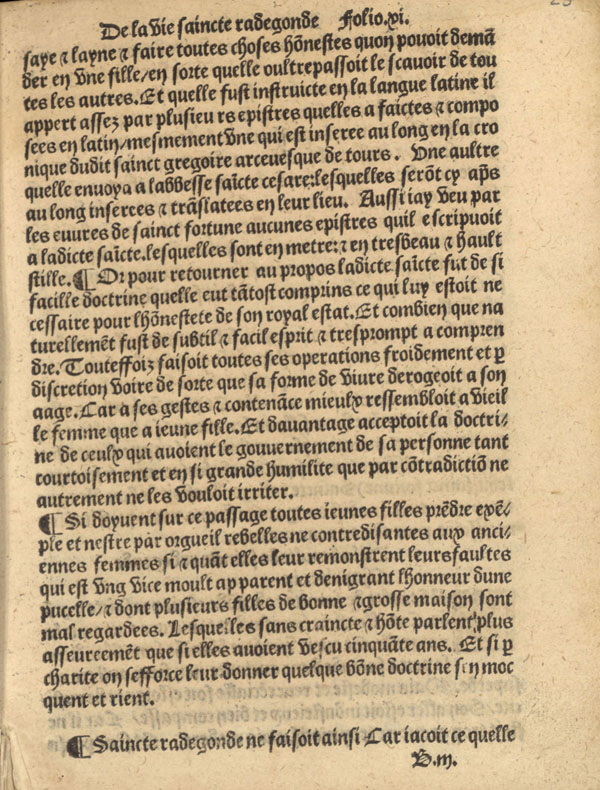 De la vie saincte radegonde Folio.xi.
saye ⁊ layne ⁊ faire toutes choses hōnestes quon pouoit demā
der en vne fille/en sorte quelle oultrepassoit le scauoir de tou
tes les autres. Et quelle fust instruicte en la langue latine il
appert assez par plusieu rs epistres quelles a faictes ⁊ compo
sees en latin/mesmement vne qui est inseree au long en la cro
nique dudit sainct gregoire arceuesque de tours. Vne aultre
quelle enuoya a labbesse saīcte cesare:lesquelles serōt cy ap̄s
au long inserees ⁊ trāslatees en leur lieu. Aussi iay veu par
les euures de sainct fortune aucunes epistres quil escripuoit
a ladicte saīcte.lesquelles sont en metre:⁊ en tresbeau ⁊ hault
stille. ¶ Or pour retourner au propos ladicte saīcte fut de si
facille doctrine quelle eut tātost comprins ce qui luy estoit ne
cessaire pour lhōnestete de son royal estat. Et combien que na
turellemēt fust de subtil ⁊ facil esprit ⁊ tresprompt a compren
dre. Touteffoiz faisoit toutes ses operations froidement et ꝑ
discretion voire de sorte que sa forme de viure derogeoit a son
aage. Car a ses gestes ⁊ contenāce mieulx ressembloit a vieil
le femme que a ieune fille. Et dauantage acceptoit la doctri-
ne de ceulx qui auoient le gouuernement de sa personne tant
courtoisement et en si grande humilite que par cōtradictiō ne
autrement ne les vouloit irriter.
¶ Si doyuent sur ce passage toutes ieunes filles prēdre exē-
ple et nestre par orgueil rebelles ne contredisantes aux anci-
ennes femmes si ⁊ quāt elles leur remonstrent leurs faultes
qui est vng vice moult apparent et denigrant lhonneur dune
pucelle/⁊ dont plusieurs filles de bonne ⁊grosse maison sont
mal regardees. Lesquelles sans craincte ⁊ hōte parlent plus
asseureemēt que si elles auoient vescu cinquāte ans. Et si ꝑ
charite on sefforce leur donner quelque bōne doctrine sen moc
quent et rient.
¶ Saincte radegonde ne faisoit ainsi Car iacoit ce quelle
B.iii.